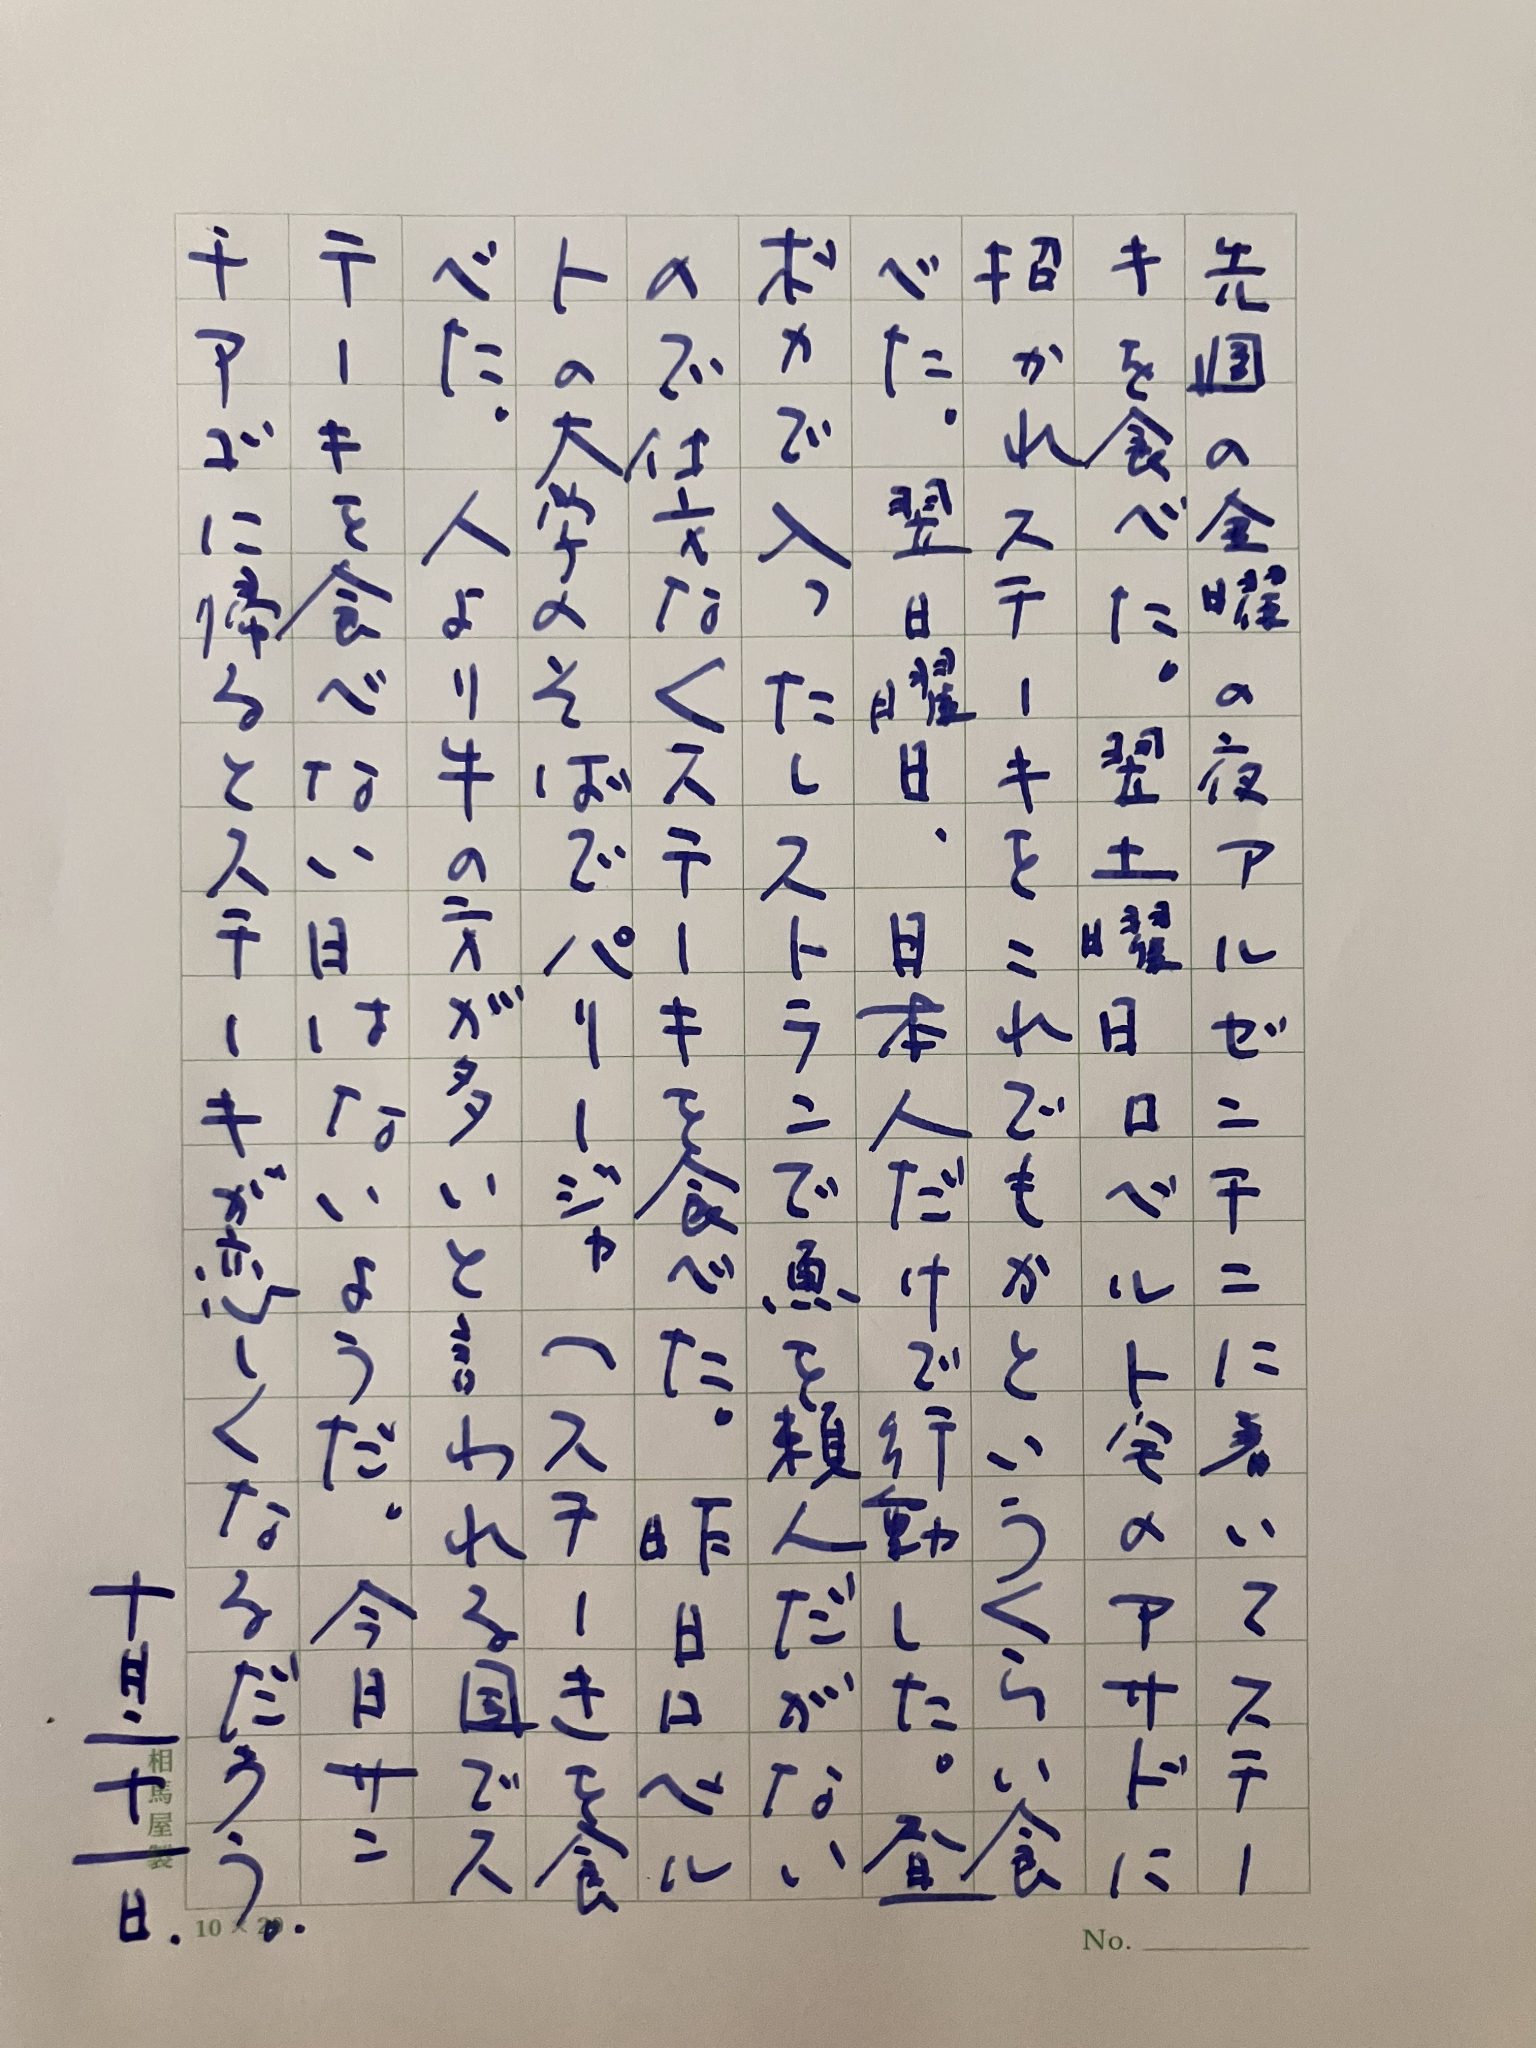 先週の金曜の夜アルゼンチンに着いてステー
キを食べた。翌土曜日ロベルト宅のアサドに
招かれステーキをこれでもかというくらい食
べた。翌日曜日、日本人だけで行動した。昼
ボカで入ったレストランで魚を頼んだがない
ので仕方なくステーキを食べた。昨日ロベル
トの大学のそばでパリージャへステーキを食
べた。人より牛の方が多いと言われる国でス
テーキを食べない日はないようだ。今日サン
チアゴに帰るとステーキが恋しくなるだろう。
十月二十一日.
相馬屋製
10×20
No.